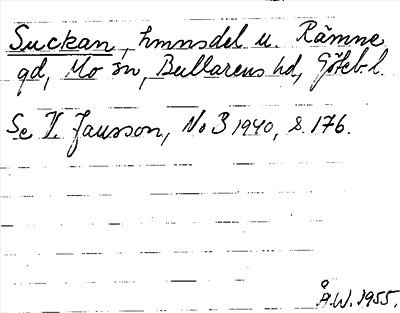 Suckan, hmnsdel u. Rämne
gd, Mo sn, Bullarens hd, Göteb. l.
Se V Jansson, NoB 1940, s. 176.
Å.W. 1955.